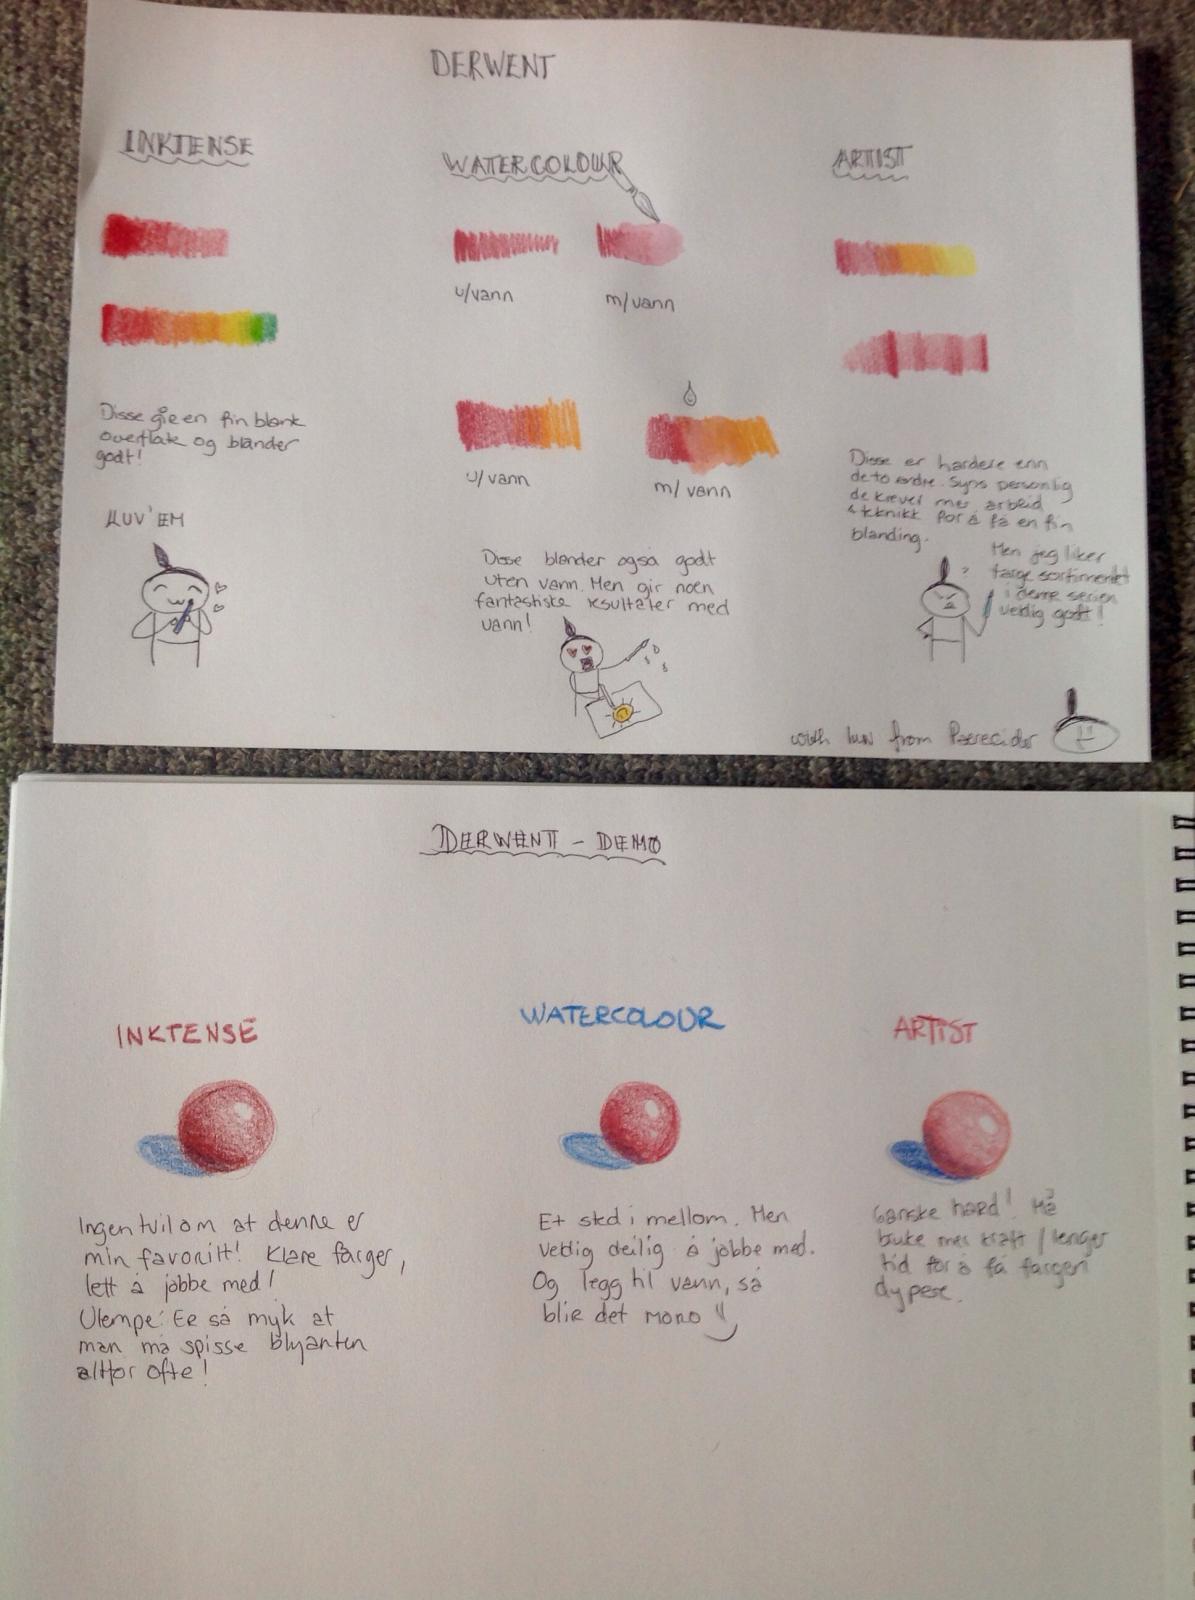 DERWENT
INKTENSE
Disse gir en fin blank
overflate og blander
godt!
LUV'EM
WATERCOLOUR
u/vann
m/vann
u/vann
m/vann
Disse blander også godt
uten vann. Men gir noen
fantastiske resultater med
vann!
ARTIST
Disse er hardere enn
de to andre. Syns personlig
de krever mer arbeid
& teknikk for å få en fin
blanding.
Men jeg liker
farge sortimentet
i denne serien
veldig godt!
?
with luv from Pærecider
DERWENT - DEMO
INKTENSE
Ingen tvil om at denne er
min favoritt! Klare farger,
lett å jobbe med!
Ulempe: Er så myk at
man må spisse blyanten
altfor ofte!
WATERCOLOUR
Et sted i mellom. Men
veldig deilig å jobbe med.
Og legg til vann, så
blir det moro
ARTIST
Ganske hard! Må
bruke mer kraft / lenger
tid for å få fargen
dypere.